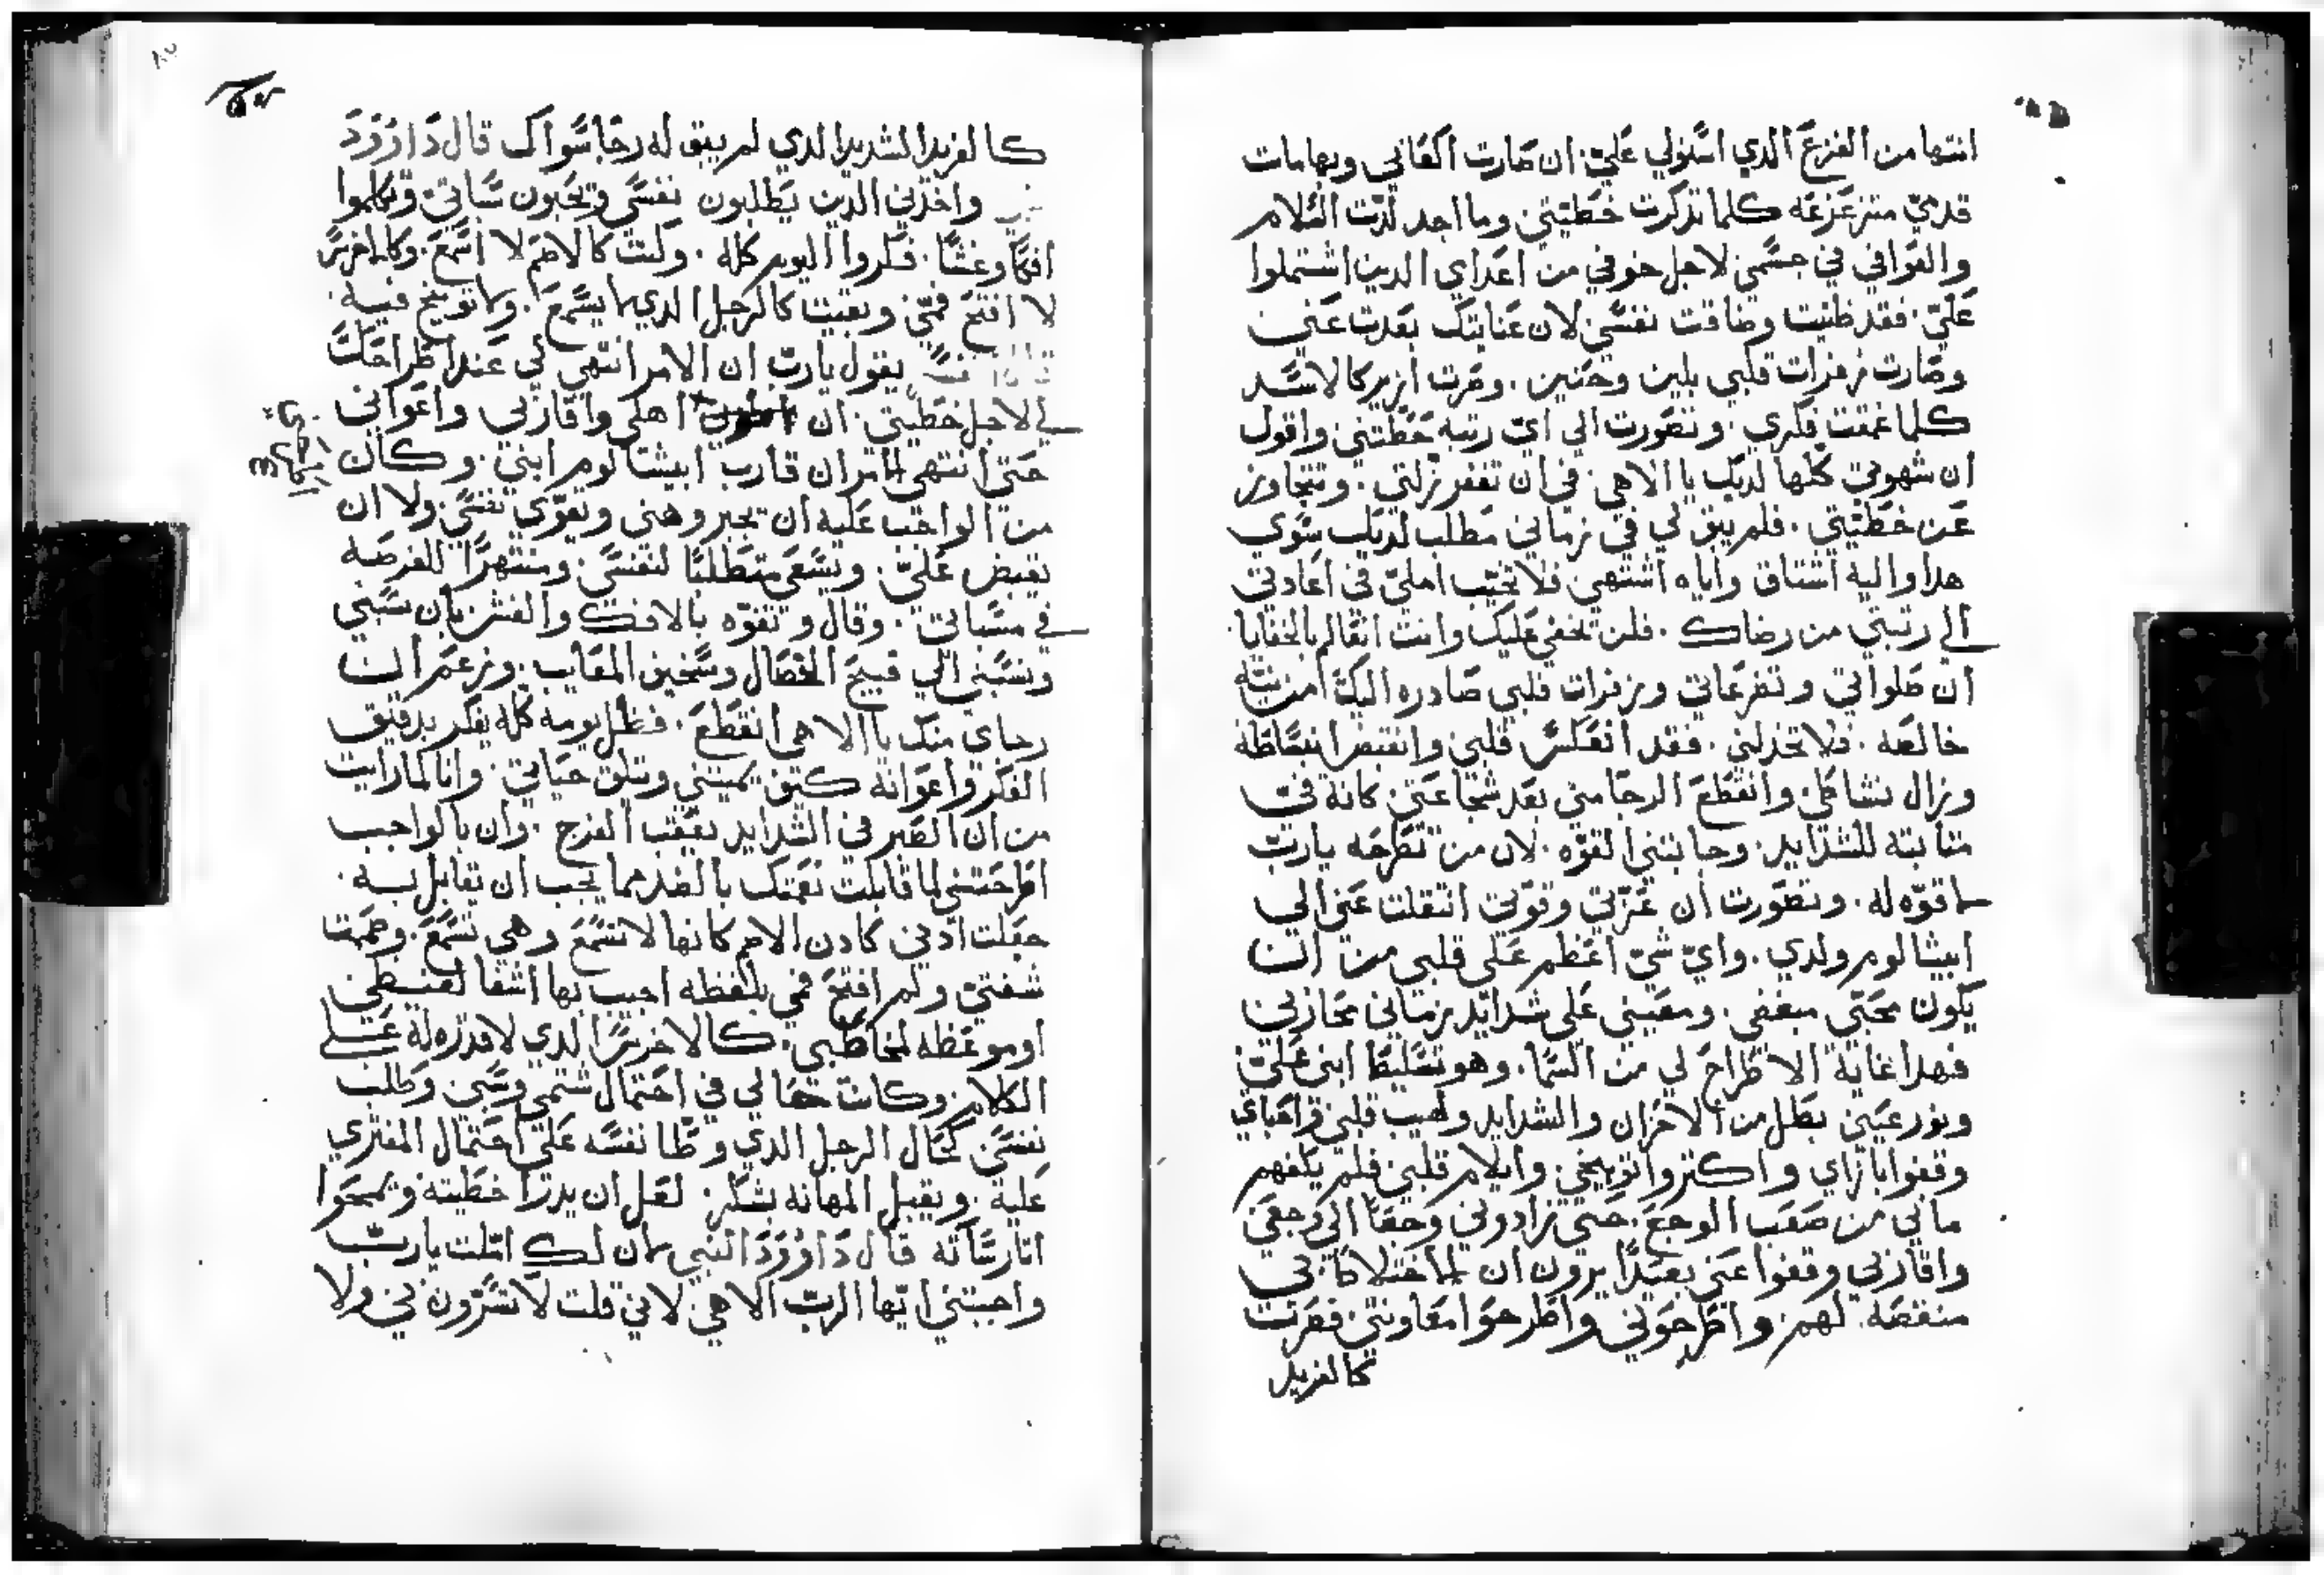 انتها من الفزع الدي استولي علي. ان صارت اكعابي وبهامات
قدمي متزعزعه كلما تدكرت خطيتي وما اجد لدت السلام
والعوافي في جسمي لاجل خوفي من اعداي الدين اشتملوا
علي. فقد ظنيت وضاقت نفسي لان عنايتك بعدت عني
وصارت زفرات قلبي بلين وحنين. وصرت ازير كالاسد
كلما غمقت فكري. وتصورت الي اي رتبه حطتني واقول
ان شهوتي كلها لديك يا الاهي في ان تغفر زلتي. وتتجاوز
عن خطيتي. فلم يبق لي في زماني مطلب لديك سوي
هدا واليه اشتاق واياه اشتهي فلا تخيب املي في اعادتي
الي رتبتي من رضاك. فلن تخفي عليك وانت العالم بالخفايا.
ان صلواتي وتضرعاتي وزفرات قلبي صادره اليك من نيته
خالصه. فلا تخدلني. فقد انعكس قلبي وانقبض انبساطه
وزال نشاطي وانقطع الرجا مني بعد شجاعتي كانة في
متابته للشدايد. وجانبتني القوه. لان من تطرحه يارب
لا قوه له. وتصورت ان عزتي وقوتي انتقلت عني الي
ابيشالوم ولدي. واي شي اعظم علي قلبي من ان
يكون محبي مبغضي. ومعيني علي شدايد زماني محاربي
فهدا غاية الاطراح لي من السما. وهو تسليط ابني علي
ونور عيني بطل من الاحزان والشدايد ولهيب قلبي واحباي
وقفوا بازاي واكتروا توبيخي وايلام قلبي فلم يكفهم
ما بي من صعب الوجع. حتي زادوني وجعا الي وجعي
واقاربي وقفوا عني بعيدا يرون ان اختلاطي
منقصه لهم. واطرحوني واطرحوا معاونتي. فصرت
كالفريد
كالفريد الشديد الدي لم يبق له رجا سواك قال داوود
واخدني الدين يطلبون نفسي ويحبون سياتي وتكلموا
افكا وغشا. فكروا اليوم كله. وكنت كالاصم لا اسمع. وكالخرس
لا افتح فمي وبقيت كالرجل الدي لا يسمع. ولا توبيخ فيه
يقول يارب ان الامر انتهي لي عند اطراحك
لي لاجل خطيتي. ان اهلي واقاربي واعواني
حتي انتهي الامر ان قارب ابيشالوم ابني. وكان
من الواجب عليه ان يجبر وهني ويقوي نفسي. ولا ان
يقبض علي. ويسعي متطلبا لنفسي. ومنتهزا للفرصه
في مسباتي. وقال وتفوه بالافك والغش بان سبني
ونسبني الي قبيح الفصال وسخين المعايب. وزعم ان
رجاي منك يا الاهي انقطع. فظل يومه كله يفكر بدقيق
الفكر واعوانه كيف يميتني ويتلف حياتي. وانا لما رايت
من ان الصبر في الشدايد يعقب الفرج. وان بالواجب
اطرحتني لما قابلت نعمتك بالضد مما يجب ان تقابل به.
جعلت ادني كادن الاصم كانها لا تسمع وهي تسمع. وصمت
شفتي ولم افتح فمي بلفظه اجيب بها اشفا لغيظي
او موعظه لمخاطبي. كالاخرس الدي لا قدره له علي
الكلام. وكانت حالي في احتمال شتمي وسبي وطلب
نفسي كحال الرجل الدي وطا نفسه علي احتمال المفتري
عليه. ويقبل المهانه بشكر. لعل ان يدرا خطيته ويمحوا
اتار سياته قال داوود النبي لان لك اتكلت يارب
واجبتني ايها الرب الاهي لاني قلت لا تسرون بي ولا